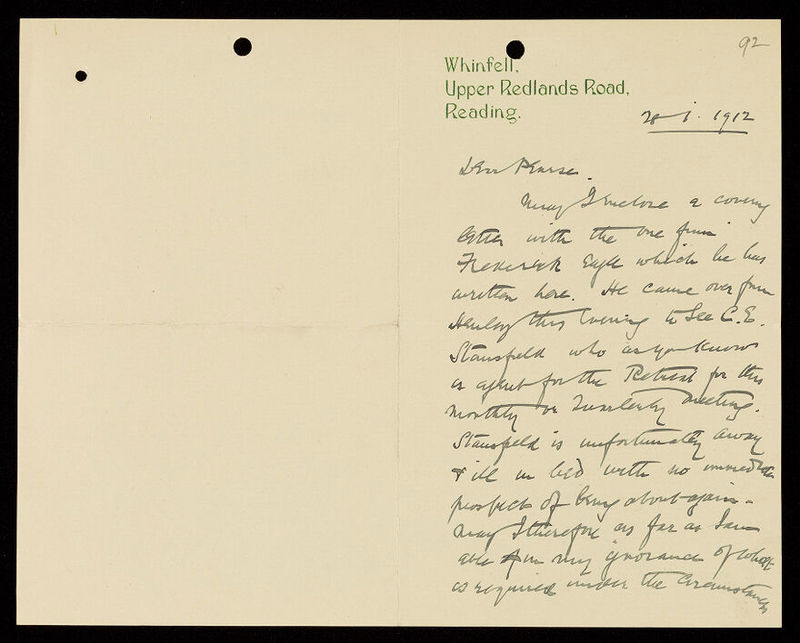 92
Whinfell,
Upper Redlands Road,
Reading.
28 i. 1912
Dear Pearse.
May I enclose a covering
letter with the one from
Frederick which he has
written here. He came over from
Henley this evening to see C.E.
Stansfield who as you know
is agent for the Retreat for this
monthly or Quarterly meeting.
Stansfield is unfortunately away
& ill in bed with no immediate
prospects of being about again.
May I therefore as far as I am
able in my ignorance of what
is required under the circumstances